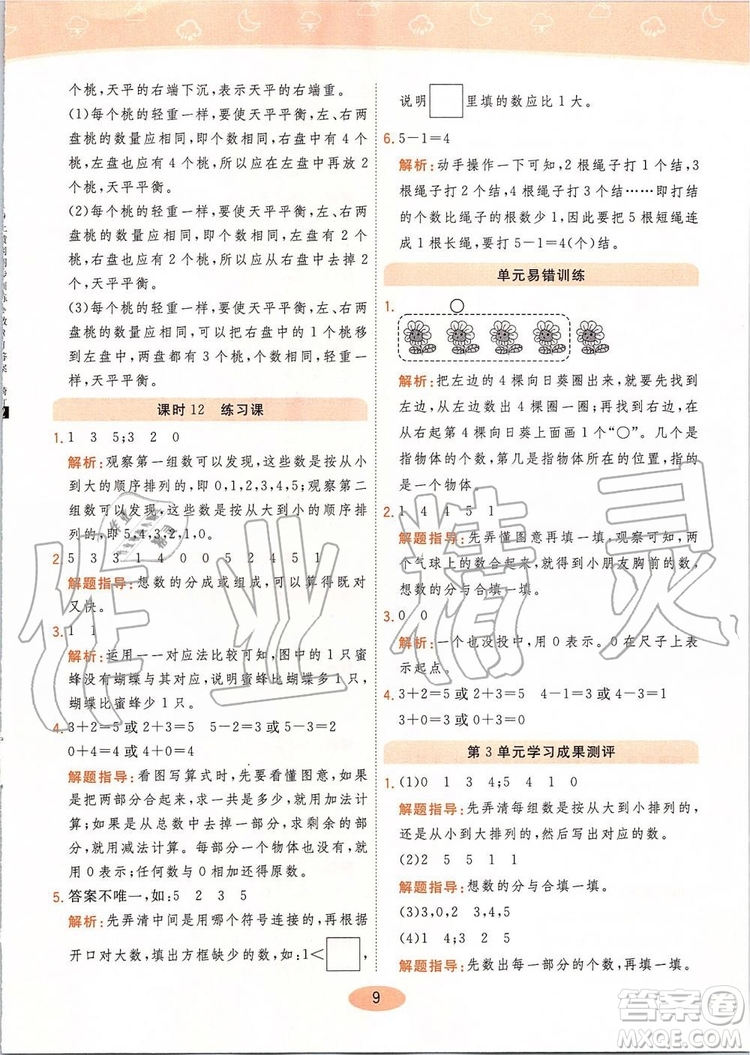 个桃,天平的右端下沉,表示天平的右端重。
(1)每个桃的轻重一样,要使天平平衡,左、右两
盘桃的数量应相同,即个数应相同,右盘中有4
个桃,左盘也应有4个桃,所以应画出4个桃,
天平平衡。
(2)每个桃的轻重一样,要使天平平衡,左、右两
盘桃的数量应相同,即个数应相同,左盘中有2
个桃,右盘也应有2个桃,所以应划掉2个桃,
天平平衡。
(3)每个桃的轻重一样,要使天平平衡,左、右两
盘桃的数量应相同,即个数相同,将右盘中的1
个桃移到左盘中,两盘都有3个桃,轻重一样,
天平平衡。
课时12 练习课
1. 1 3 5;3 2 0
解析:观察第一组数可以发现,这些数是按从小
到大的顺序排列的,即0,1,2,3,4,5;观察第二
组数可以发现,这些数是按从大到小的顺序排
列的,即5,4,3,2,1,0。
2. 5 3 3 1 4 0 0 2 5 4 5 1
解题指导:想数的分成或组成,可以算得既对
又快。
3. 1 1
解析:运用一一对应法比较可知,图中的1只蜜
蜂没有蝴蝶与其对应,说明蜜蜂比蝴蝶多1只,
蝴蝶比蜜蜂少1只。
4. 3+2=5或2+3=5 5-2=3或5-3=2
0+4=4或4+0=4
解题指导:看图写算式时,要先看懂图意,如果
是把两部分合成一部分,求一共是多少,就用加法计
算;如果是从总数中去掉一部分,求剩余的部分,
就用减法计算。每部分中,一个物体也没有时,
用0表示;任何数与0相加都得原数。
5. 答案不唯一,如:5 2 3 5
解析:先弄清中间是用哪个符号连接的,再根据
开口对大数,填出方框缺少的数,如:1<□,
9
说明□里填的数应比1大。
6. 5-1=4
解析:动手操作一下可知,2根绳子打1个结,3
根绳子打2个结,4根绳子打3个结……即打结
的个数比绳子的根数少1,因此,要把5根短绳连
成1根长绳,要打5-1=4(个)结。
单元易错训练
1.
解析:把左边的4棵向日葵圈出来,从左边数起,
数到第4棵向日葵,在第4棵向日葵
上面画1个“○”。几个是
指物体的个数,第几是指物体所在的位置,是
指一个物体。
2. 1 4 4 5 1
解题指导:先弄懂图意再填一填。观察可知,两
个气球上的数合起来,就得到小朋友胸前的数,
想数的分与合填一填。
3. 0 0
解析:一个也没投中,用0表示;0在尺子上表
示起点。
4. 3+2=5或2+3=5 4-1=3或4-3=1
3+0=3或0+3=3
第3单元学习成果测评
1. (1)0 1 3 4;5 4 1 0
解题指导:先弄清每组数是按从大到小排列的,
还是从小到大排列的,然后写出对应的数。
(2)2 5 5 1 1
解题指导:想数的分与合填一填。
(3)3,0,2 3,4,5
(4)1 4;3 2 5
解题指导:先数出每一部分的个数,再填一填。
作业精灵
答案圈
MXQE.COM